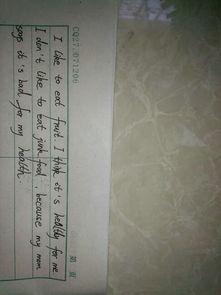 CQ27.071206
I like to eat fruit. I think it's healthy for me.
I don't like to eat junk food, because my mom
says it's bad for my health.
第 页